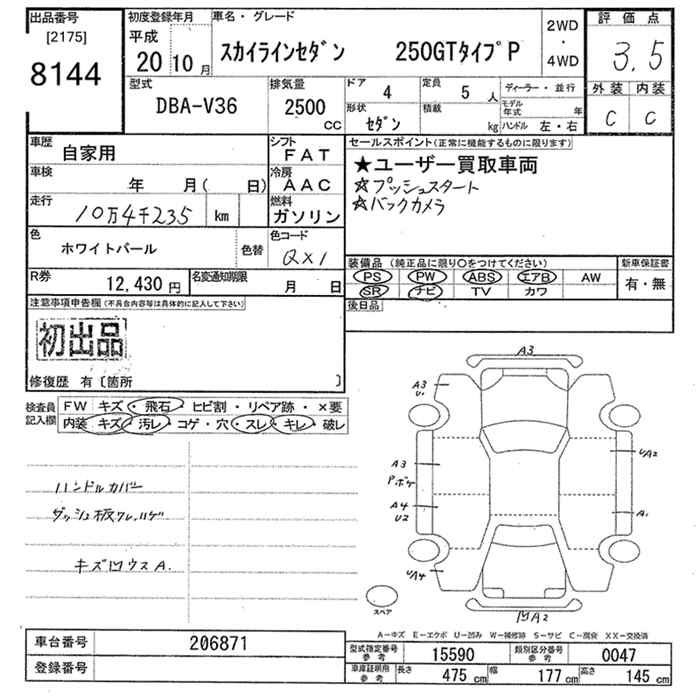 出品番号
[2175]
8144
初度登録年月
平成
20 10 月
車名・グレード
スカイラインセダン 250GTタイプP
2WD
・
4WD
評価点
3.5
外装 内装
C C
型式
DBA-V36
排気量
2500
CC
ドア 4
定員 5 人
ディーラー・並行
形状
セダン
積載 kg
モデル年式 年
ハンドル 左・右
車歴
自家用
シフト
FAT
車検
年 月( 日)
冷房
AAC
走行
10万4千235 km
燃料
ガソリン
色
ホワイトパール
色替
色コード
QX1
R券
12,430 円
名変通知期限
月 日
セールスポイント(正常に機能するものに限ります)
★ユーザー買取車両
☆プッシュスタート
☆バックカメラ
装備品 (純正品に限り○をつけてください)
新車保証書
PS PW ABS エアB AW
有・無
SR ナビ TV カワ
後日品
注意事項申告欄(不具合内容等は具体的に記入して下さい)
初出品
修復歴 有〔箇所 〕
検査員記入欄
FW キズ・飛石・ヒビ割・リペア跡・×要
内装 キズ・汚レ・コゲ・穴・スレ・キレ・破レ
ハンドルカバー
ダッシュ板ワレ、ハゲ
キズ凹ウスA.
A3
A3
U1
UA2
A3
Pボケ
A4
U2
A1
UA4
凹A2
スペア
A-キズ E-エクボ U-凹み W-補修跡 S-サビ C-腐食 XX-交換済
車台番号 206871
登録番号
型式指定番号 参考 15590
類別区分番号 参考 0047
車庫証明用 参考
長さ 475 cm 幅 177 cm 高さ 145 cm